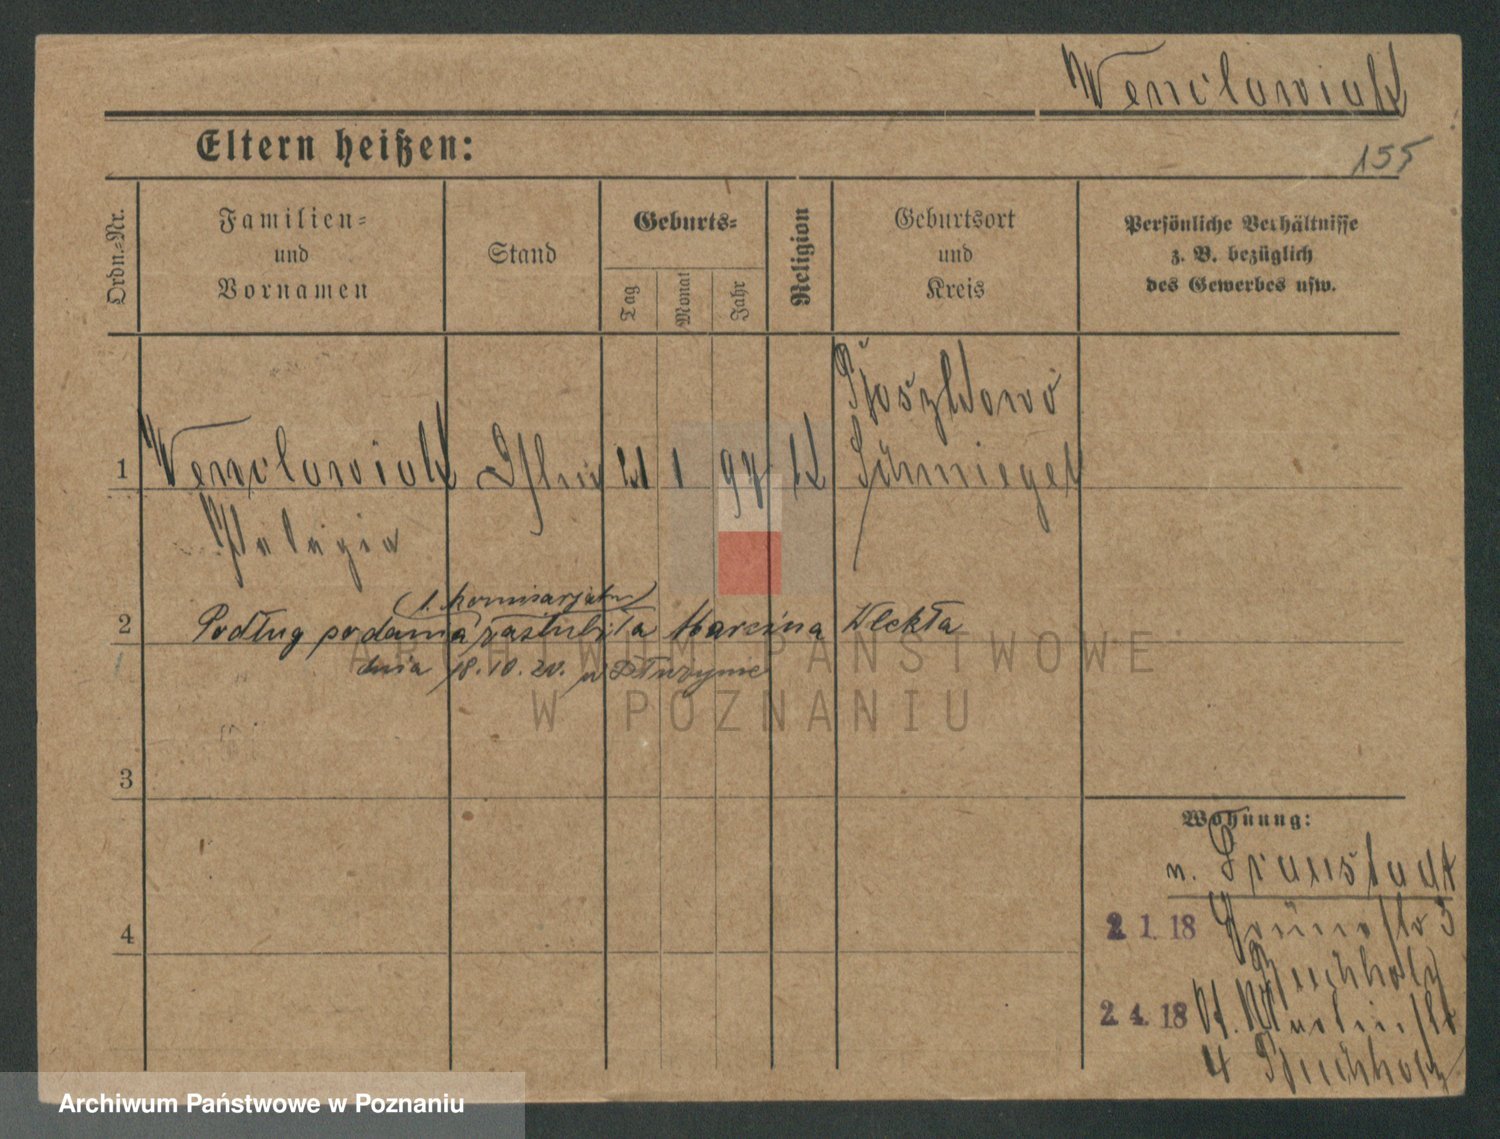 Wenclowiak
155
Eltern heißen:
Ordn.-Nr.
Familien-
und
Vornamen
Stand
Geburts-
Tag
Monat
Jahr
Religion
Geburtsort
und
Kreis
Persönliche Verhältnisse
z. B. bezüglich
des Gewerbes usw.
1 Wenclowiak 1 97 K Schmiegel
Pelagia
(1. komisarjatu)
2 Podług podania zaślubiła Marcina Wlekła
dnia 18.10.20. w Dłużynie
ARCHIWUM PAŃSTWOWE
W POZNANIU
3
Wohnung:
n. Fraustadt
4
2. 1. 18 3
Buchholz
2. 4. 18
4 Buchholz
Archiwum Państwowe w Poznaniu